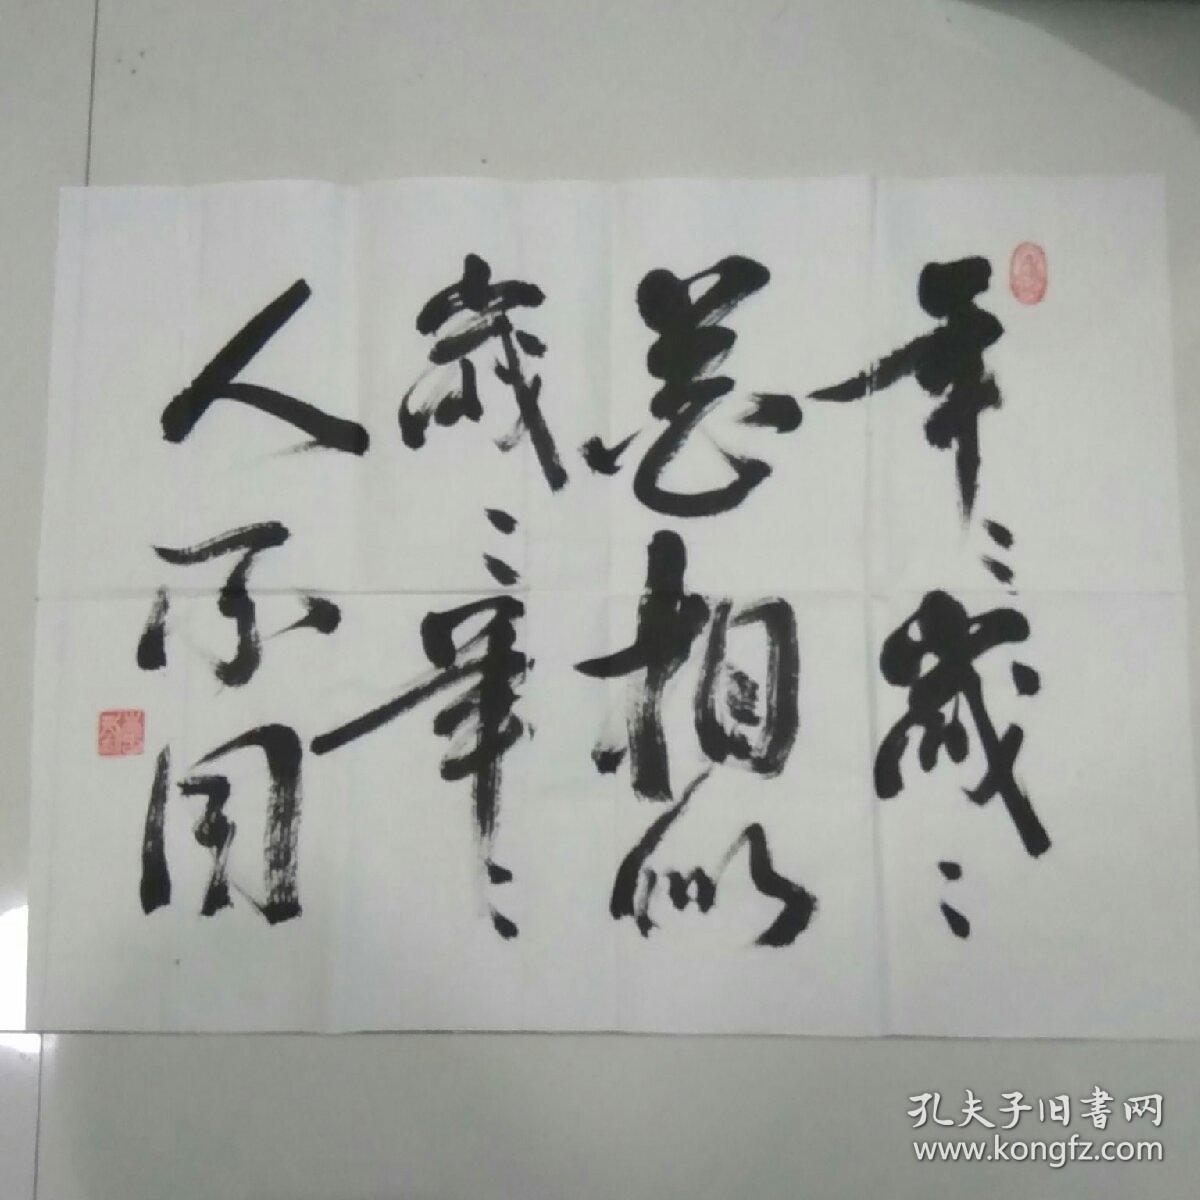 年〻歲〻
总相似
歲〻年〻
人不同
孔夫子旧書网
www.kongfz.com